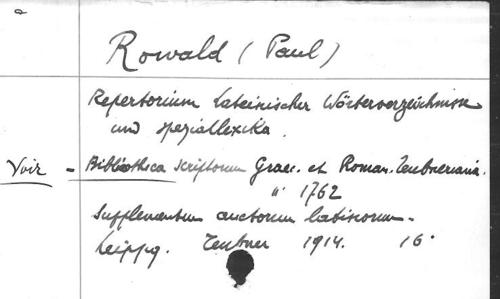 Rowald (Paul)
Repertorium lateinischer Wörterverzeichnisse
und speziallexika.
Voir = Bibliotheca scriptorum Graec. et Roman. Teubneriana.
" 1762
Supplementum auctorum latinorum.
Leipzig. Teubner 1914. 16°